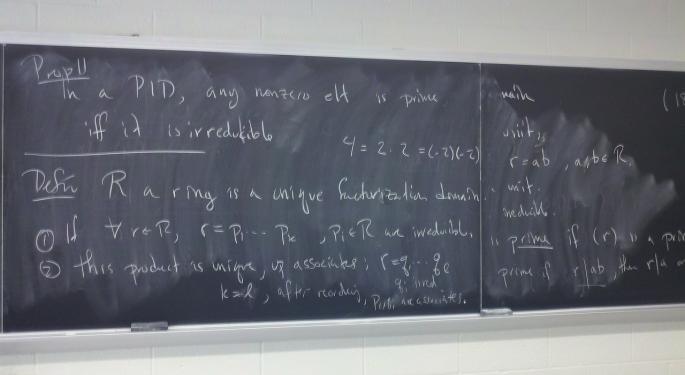 Prop 11
In a PID, any nonzero elt is prime
iff it is irreducible
4 = 2 · 2 = (-2)(-2)
Defn R a ring is a unique factorization domain
① If ∀ r ∈ R, r = P₁ ... Pₖ , Pᵢ ∈ R are irreducible.
② this product is unique, up associates; r = q₁ ... qₗ
qᵢ irred
k = l, after reordering, Pᵢ, qᵢ are associates.
unit,
r = ab , a, b ∈ R,
unit.
irreducible.
is prime if (r) is a prim
prime if r|ab, then r|a o
(18